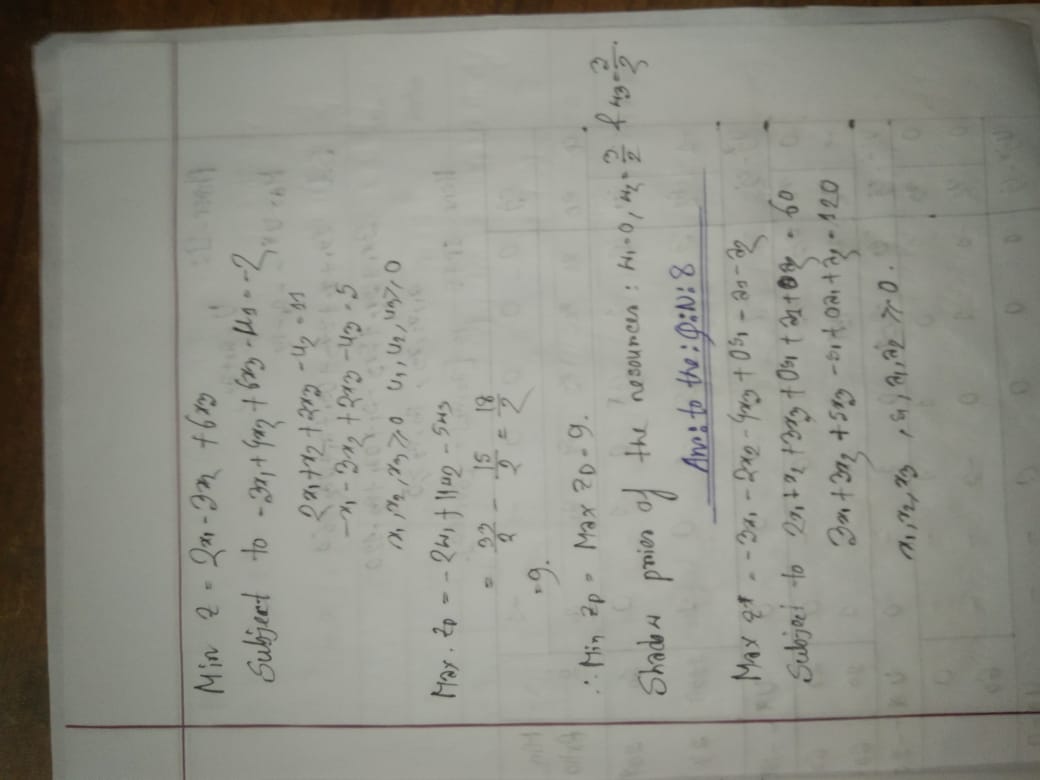 Min z = 2x₁ - 3x₂ + 6x₃
Subject to -3x₁ + 4x₂ + 6x₃ - u₁ = -2
2x₁ + x₂ + 2x₃ - u₂ = 11
-x₁ - 3x₂ + 2x₃ - u₃ = 5
x₁, x₂, x₃ ≥ 0 u₁, u₂, u₃ ≥ 0
Max. z_D = -2w₁ + 11w₂ - 5w₃
= 33/2 - 15/2 = 18/2
= 9.
∴ Min z_p = Max z_D = 9.
Shadow prices of the resources : w₁ = 0, w₂ = 3/2 & w₃ = 3/2.
Ans: to the: Q: N: 8
Max z* = -3x₁ - 2x₂ - 4x₃ + 0s₁ - a₁ - a₂
Subject to 2x₁ + x₂ + 3x₃ + 0s₁ + a₁ + 0a₂ = 60
3x₁ + 3x₂ + 5x₃ - s₁ + 0a₁ + a₂ = 120
x₁, x₂, x₃, s₁, a₁, a₂ ≥ 0.